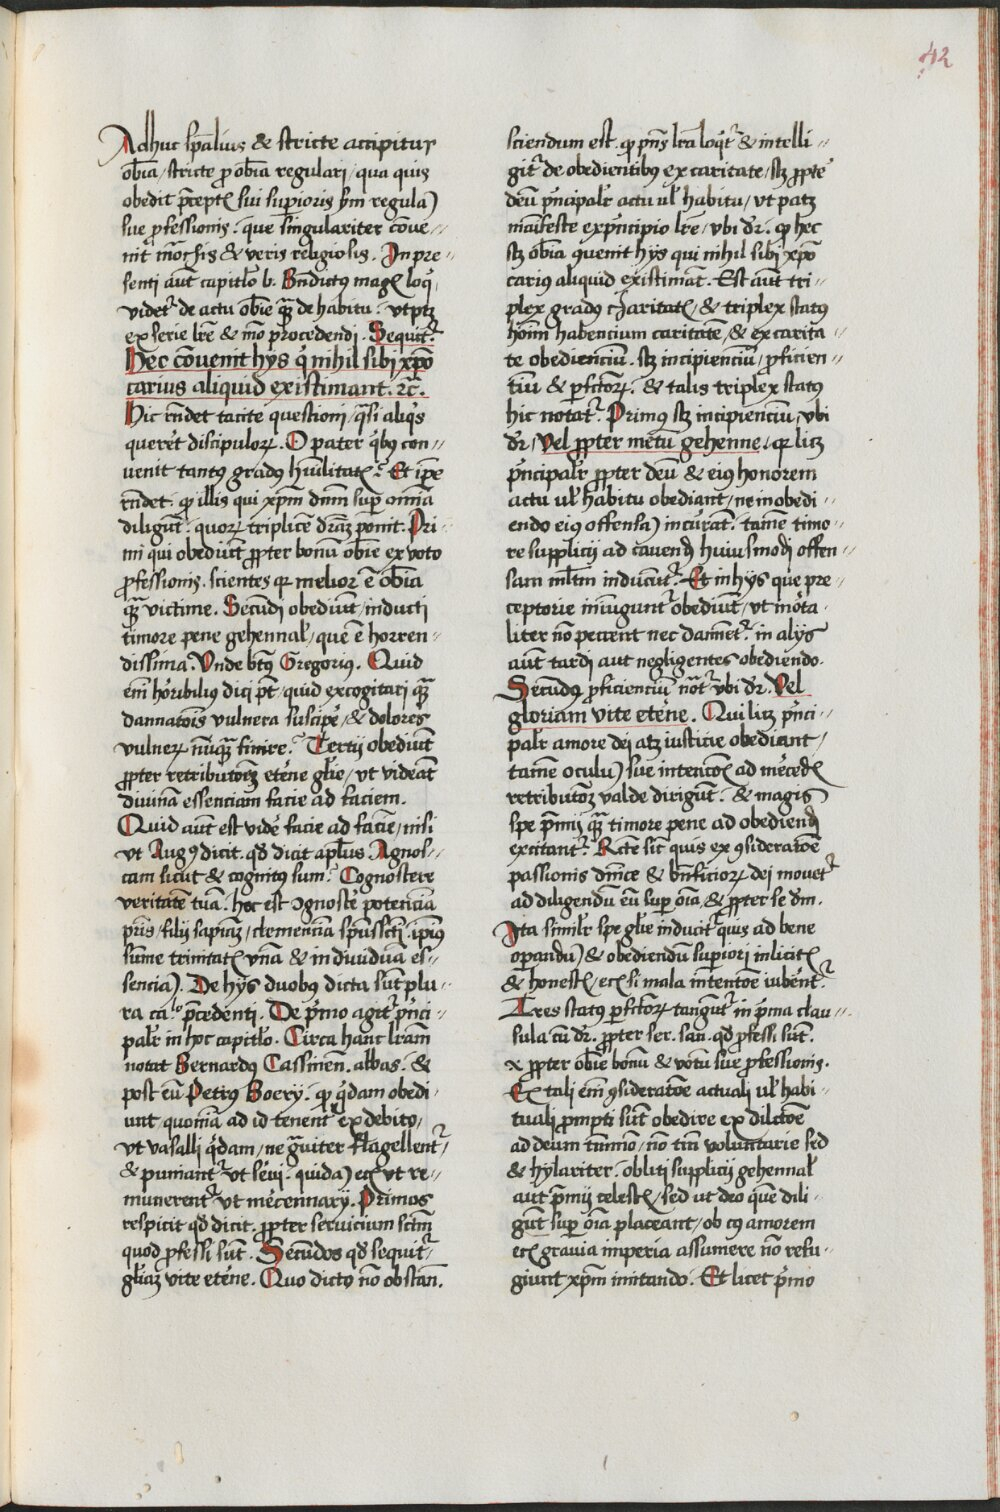 42
Adhuc sp̄alius & stricte accipitur
ob̄ia / stricte pro ob̄ia regulari / qua quis
obedit p̄cept⁊ sui sup̄ioris s̄m regulā
sue ꝓfessionis. que singulariter cōue-
nit mōchis & veris religiosis. In pre-
senti aūt capitl̓o b. Bn̄dictus mag⁊ loq̄
videt̓ de actu ob̄ie qͣꝫ de habitu. vt ptꝫ
ex serie lr̄e & mō procedendi. Sequit̓.
Hec cōuenit hys q̓ nihil sibi xp̄o
carius aliquid existimant. ⁊c̄.
Hic rn̄det tacite questioni / qͣsi aliq̓s
querēt discipuloꝝ. O pater q̓bꝯ con-
uenit tantꝯ gradꝯ hūilitat⁊? Et ip̄e
rn̄det. ꝙ illis qui xp̄m dn̄m suꝑ om̄ia
diligūt. quoꝝ triplicē dr̄iaꝫ ponit. Pri
mi qui obediūt ꝓpter bonū ob̄ie ex voto
ꝓfessionis. scientes ꝙ melior ē ob̄ia
qͣꝫ victime. Secūdi obediūt / inducti
timore pene gehennal̓ / que ē horren-
dissima. Vnde bt̄ꝯ Gregoriꝯ. Quid
em̄ horibilius dici pt̄ / quid excogitari qͣꝫ
dannatōis vulnera suscipe̓ / & dolores
vulneꝝ nūqͣꝫ finire? Tertij obediūt
ꝓpter retributōeꝫ eterne gl̄ie / vt videāt
diuinā essenciam facie ad faciem.
Quid aūt est vide̓ facie ad faciē / nisi
vt Augꝯ dicit. qd̄ dicit apl̄us Agnos-
cam sicut & cognitus sum? Cognoscere
veritatē tuā. hoc est ꝯgnosce̓ potenciā
pr̄is / filij sapiēciā / clemenciā sp̄usscti. ip̄iꝯ
sum̄e trinitat⁊ vnā & indiuiduā es-
senciā. De hys duobꝯ dicta sūt plu-
ra ca.lo p̄cedenti. De p̓mo agit̓ p̓nci-
palr̓ in hoc capitl̓o. Circa hanc lr̄am
notat Bernardꝯ Cassinēn. abbas. &
post eū Petrus Boery. ꝙ q̓dam obedi
unt quoniā ad id tenent̓ ex debito /
vt vasalli q̓dam / ne gͣuiter flagellent̓ /
& puniant̓ vt serui. quidā ec̄ vt re-
munerent̓ vt mercennarÿ. Primos
respicit qd̄ dicit. ꝓpter seruicium sct̄m
quod ꝓfessi sūt. Secūdos qd̄ sequit̓
gl̄iaꝫ vite eterne. Quo dictꝯ nō obstan.
sciendum est. ꝙ pn̄s lr̄a loqt̓ & intelli-
git̓ de obedientibꝯ ex caritate / sꝫ ꝓpte̓
deū p̓ncipalr̓ actu ul̓ habitu / vt patꝫ
māifeste ex p̓ncipio lr̄e / vbi dr̄. ꝙ hec
sꝫ ob̄ia ꝯuenit hys qui nihil sibi xp̄o
carius aliquid existimāt. Est aūt tri-
plex gradꝯ charitat⁊ / & triplex statꝯ
hoīm habencium caritatē / & ex carita-
te obedienciū. sꝫ incipienciū / ꝓficien-
tiū & ꝑfctoꝝ. & talis triplex statꝯ
hic notat̓. Primꝯ sꝫ incipienciū / vbi
dr̄ / Vel ꝓpter metū gehenne. qui licꝫ
p̓ncipalr̓ ꝓpter deū & eiꝯ honorem
actu ul̓ habitu obediant / ne inobedi-
endo eiꝯ offensā incurāt. tamē timo-
re supplicij ad cauendū huiusmodi offen-
sam ml̄tm inducūt̓. Et in hys que pre-
ceptorie iniungunt̓ obediūt / vt mōta
liter nō peccent nec dannēt̓. in alÿs
aūt tardi aut negligentes obediendo.
Secūdꝯ ꝓficienciū not̓ vbi dr̄. Vel
gloriam vite eterne. Qui licꝫ p̓nci-
palr̓ amore dei atꝫ iusticie obediant /
tamē oculū sue intencōis ad mercedē
retributōꝫ valde dirigūt. & magis
spe p̓mij qͣꝫ timore pene ad obediendū
excitant̓. Rcte sic quis ex ꝯsideratōe
passionis dn̄ice & bn̄ficioꝝ dei mouet̓
ad diligendū eū suꝑ oīa / & ꝓpter se dm̄.
Ita simil̓r spe gl̄ie inducit̓ quis ad bene
oꝑandū & obediendū superiori in licit⁊
& honest⁊ / ec̄ si mala intentōe iubent̓
Tres status ꝑfctoꝝ tangūt̓ in p̓ma clau-
sula cū dr̄. ꝓpter ser. san. qd̄ ꝓfessi sūt.
x ꝓpter ob̄ie bonū & votū sue ꝓfessionis.
Ex tali em̄ ꝯsideratōe actuali ul̓ habi-
tuali prompti sūt obedire ex dilctōe
ad deum tm̄mō / nō tm̄ voluntarie sed
& hylariter. obliti supplicij gehennal̓
aut p̓mij celest⁊ / sed ut deo quē dili-
gūt suꝑ oīa placeant / ob cꝯ amorem
ec̄ grauia imperia assumere nō refu-
giunt xp̄m imitando. Et licet p̓mo